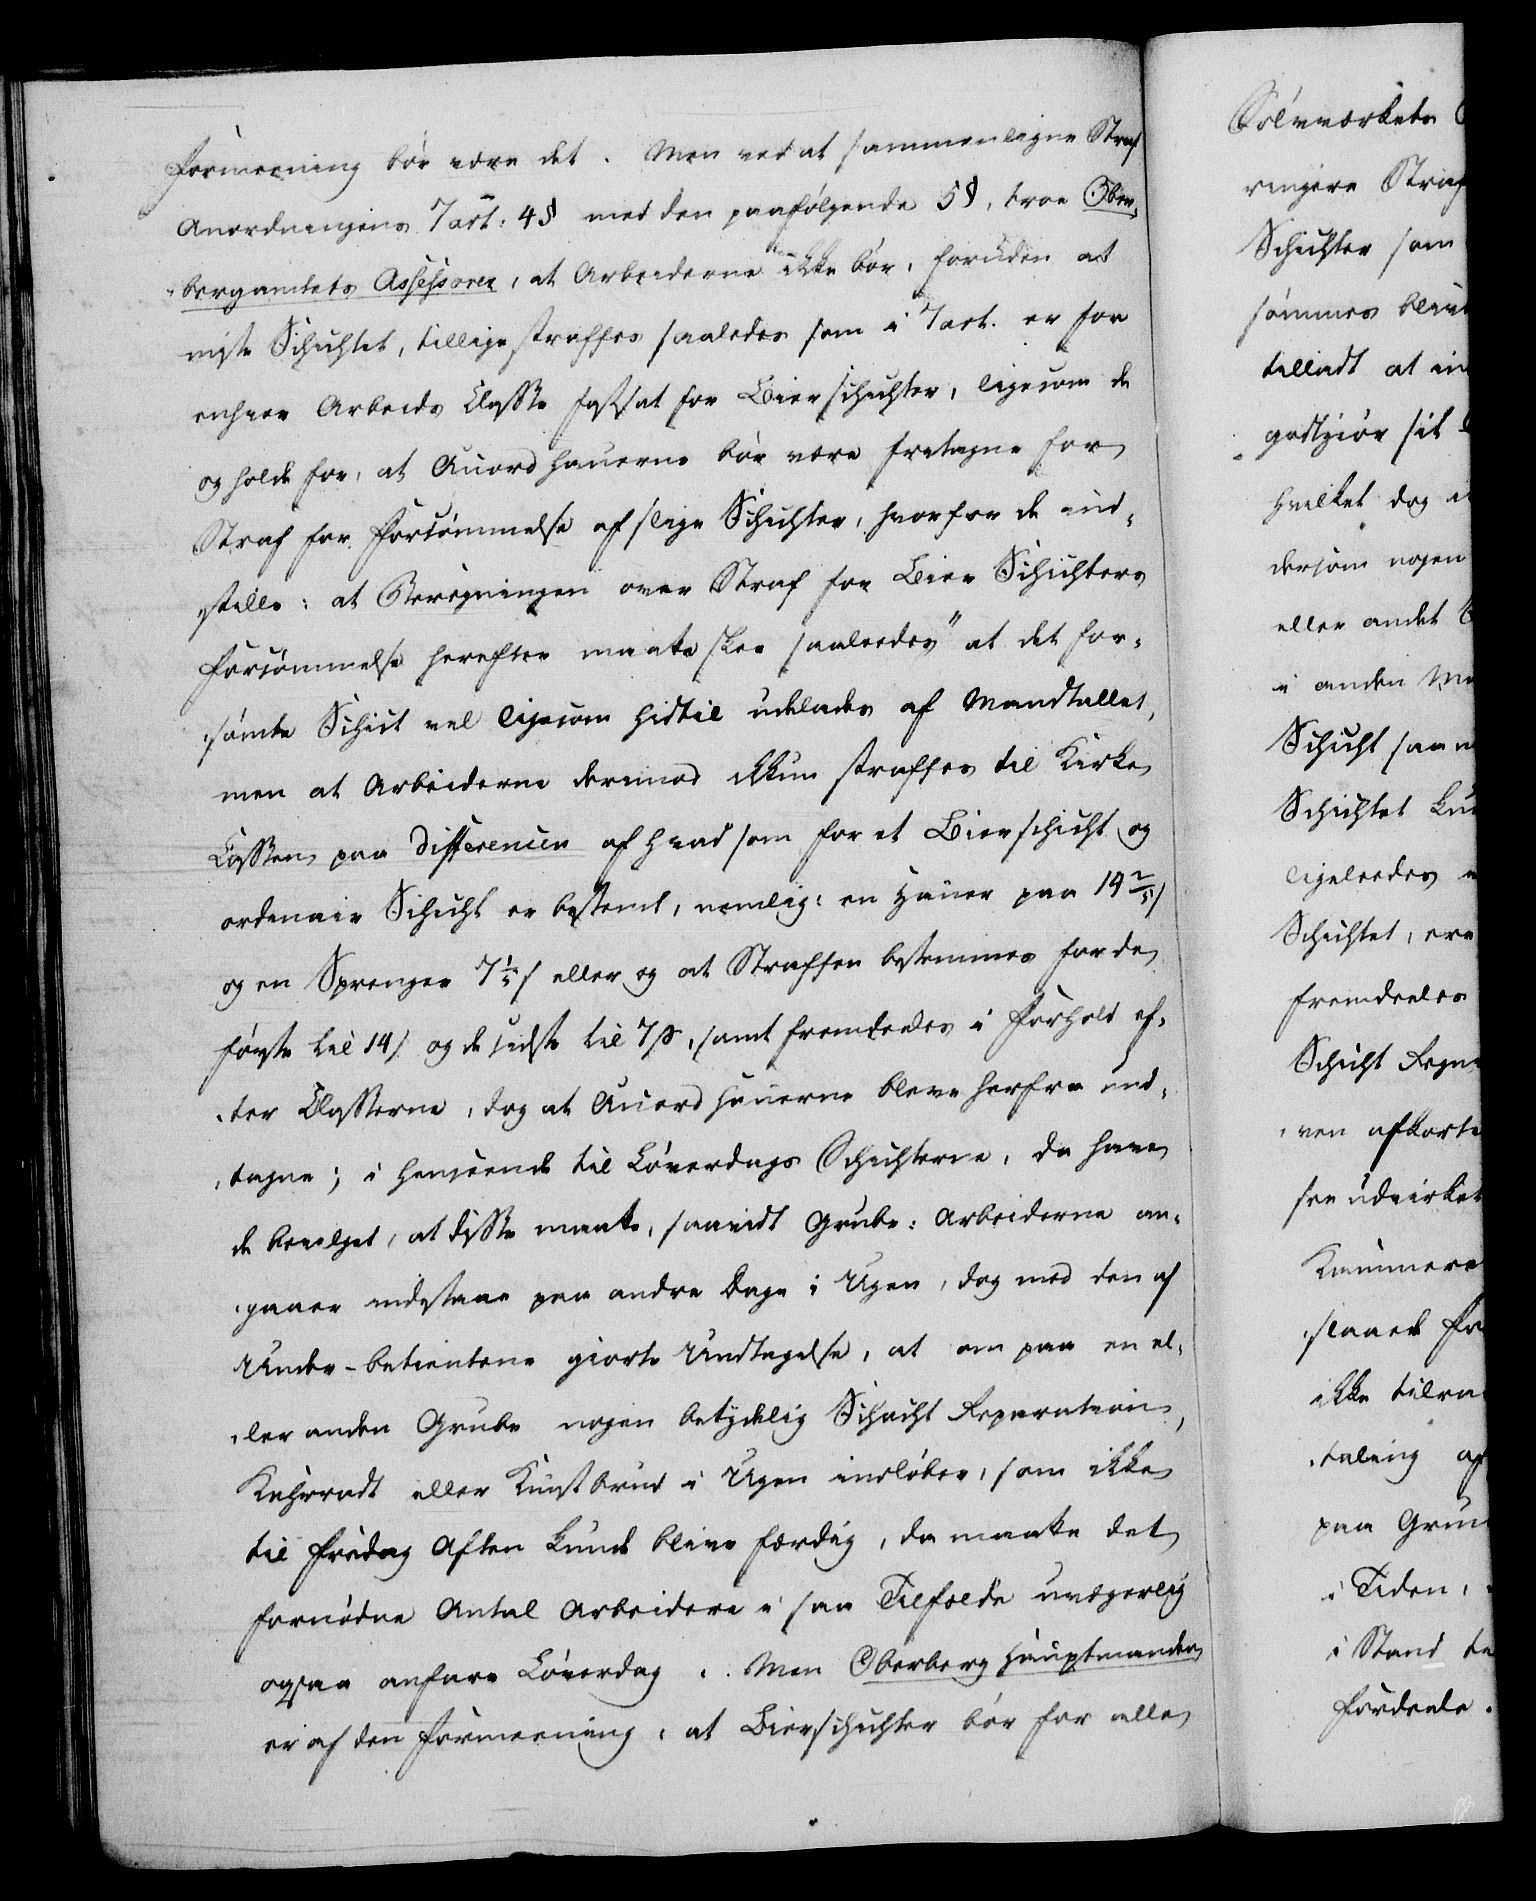 Formeening bör være det. Men ved at sammenligne Straf
Anordningens 7 art: 4 § med den paafølgende 5 §, troe Ober-
bergamtets Assessorer, at Arbeiderne ikke bör, foruden at
miste Schichtet, tillige straffes saaledes som i 7 art. er for
enhver Arbeids Classe fastsat for Bierschichter, ligesom de
og holde for, at Accord hauerne bör være fritagne for
Straf for Forsömmelse af slige Schichter, hvorfor de ind-
stille: at Beregningen over Straf for Bier Schichters
Forsömmelse herefter maatte skee saaledes" at det for-
sömte Schict vel ligesom hidtil udelades af Mandtallet,
men at Arbeiderne derimod ikkun straffes til Kirke
Cassen paa Differencen af hvad som for et Bierschicht og
ordinair Schicht er bestemt, nemlig: en Hauer paa 14 2/5 s
og en Sprenger 7 1/5 s eller og at Straffen bestemmes for de
förste til 14 s og de sidste til 7 s, samt fremdeeles i Forhold ef-
ter Classerne, dog at Accord Hauerne bleve herfra und-
tagne; i Henseende til Löverdags Schichterne, da have
de bevilget, at disse maatte, saavidt Grube-Arbeiderne an-
gaaer udstaae paa andre Dage i Ugen, dog med den af
Under-betientene giorte Undtagelse, at om paa en el-
ler anden Grube nogen betydelig Schacht Reparation,
Kehrradt eller Kunstbrud i Ugen indlöber, som ikke
til Fredag Aften kunde blive færdig, da maatte det
fornödne Antal Arbeidere i saa Tilfælde uvægerlig
ogsaa anfare Löverdag. Men Oberberg Hauptmanden
er af den Formeening, at Bierschichter bör for alle
Sölvværkets
ringere Straf
Schichter som
sömmes
tilladt at
godtgiör sit
hvilket dog
dersom nogen
eller andet
i anden
Schicht saa
Schichtet
ligeledes
Schichtet, ere
fremdeeles
Schicht
ven afkorte
see udvirket
Kammere
slaaede
ikke
taling af
paa
i Tiden,
i Stand
Fordeele.